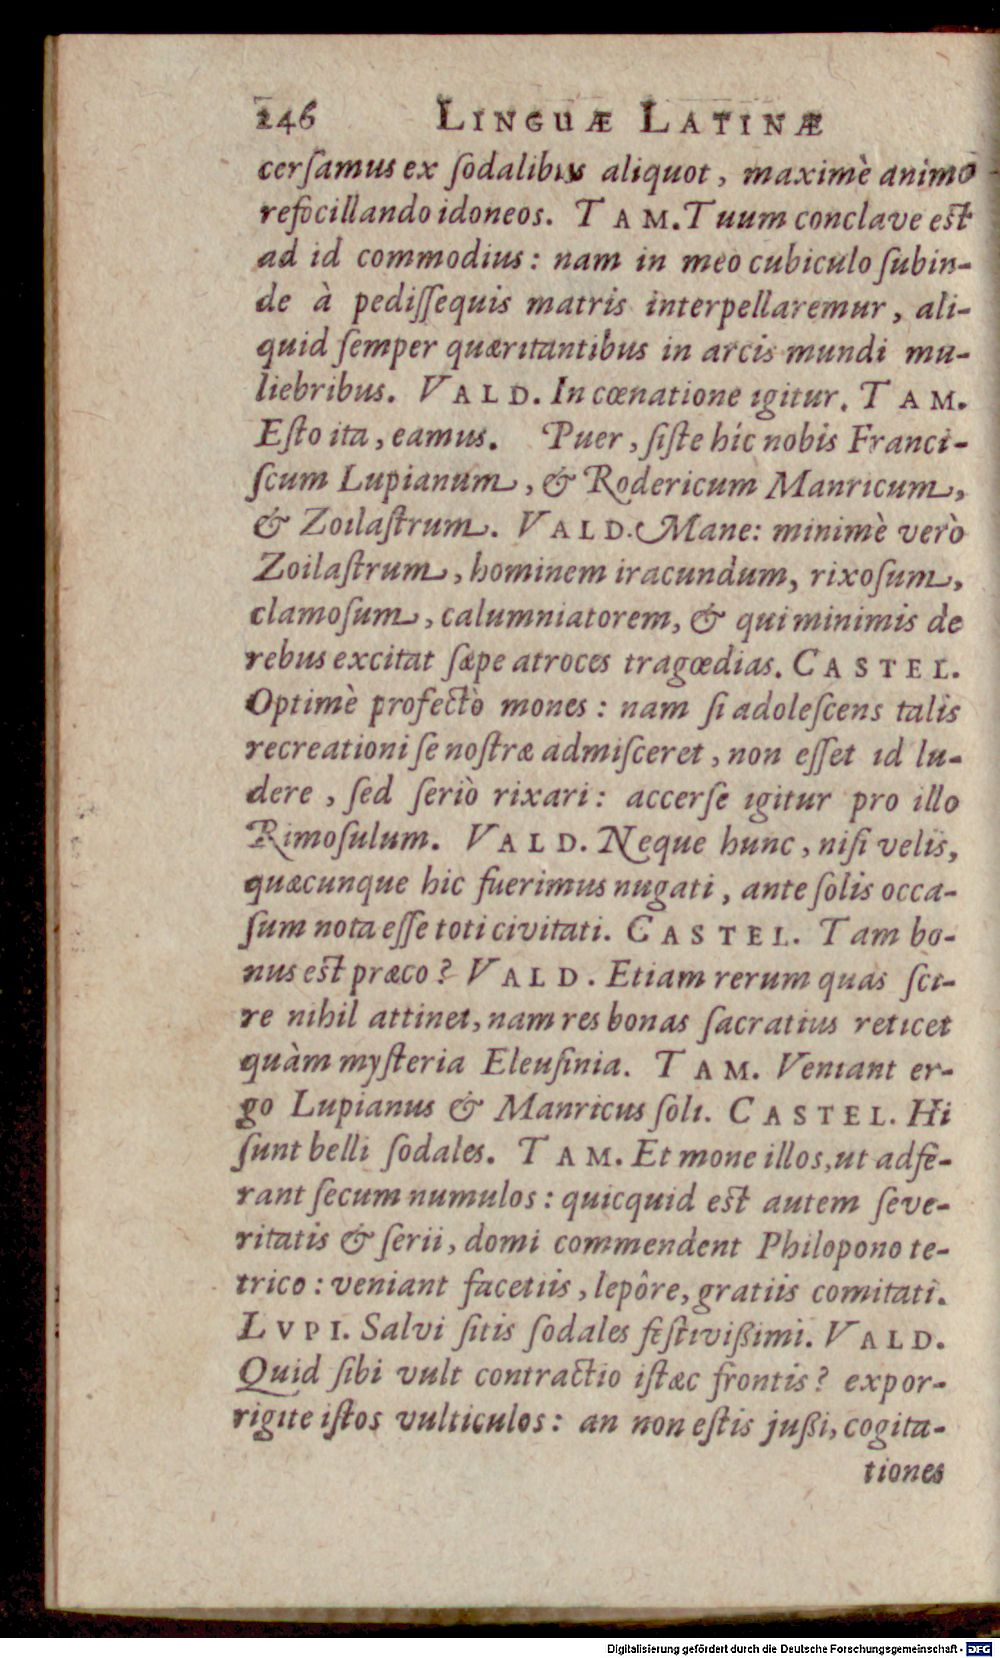 246 LINGUÆ LATINÆ
cerſamus ex ſodalibus aliquot, maximè animo
refocillando idoneos. TAM. Tuum conclave eſt
ad id commodius: nam in meo cubiculo ſubin-
de à pediſſequis matris interpellaremur, ali-
quid ſemper quæritantibus in arcis mundi mu-
liebribus. VALD. In cœnatione igitur. TAM.
Eſto ita, eamus. Puer, ſiſte hîc nobis Franci-
ſcum Lupianum, & Rodericum Manricum,
& Zoilaſtrum. VALD. Mane: minimè verò
Zoilaſtrum, hominem iracundum, rixoſum,
clamoſum, calumniatorem, & qui minimis de
rebus excitat ſæpe atroces tragœdias. CASTEL.
Optimè profectò mones: nam ſi adoleſcens talis
recreationi ſe noſtræ admiſceret, non eſſet id lu-
dere, ſed ſeriò rixari: accerſe igitur pro illo
Rimoſulum. VALD. Neque hunc, niſi velis,
quæcunque hic fuerimus nugati, ante ſolis occa-
ſum nota eſſe toti civitati. CASTEL. Tam bo-
nus eſt præco? VALD. Etiam rerum quas ſci-
re nihil attinet, nam res bonas ſacratius reticet
quàm myſteria Eleuſinia. TAM. Veniant er-
go Lupianus & Manricus ſoli. CASTEL. Hi
ſunt belli ſodales. TAM. Et mone illos, ut adfe-
rant ſecum numulos: quicquid eſt autem ſeve-
ritatis & ſerii, domi commendent Philopono te-
trico: veniant facetiis, lepôre, gratiis comitati.
LVPI. Salvi ſitis ſodales feſtivißimi. VALD.
Quid ſibi vult contractio iſtæc frontis? expor-
rigite iſtos vulticulos: an non eſtis jußi, cogita-
tiones
Digitalisierung gefördert durch die Deutsche Forschungsgemeinschaft - DFG